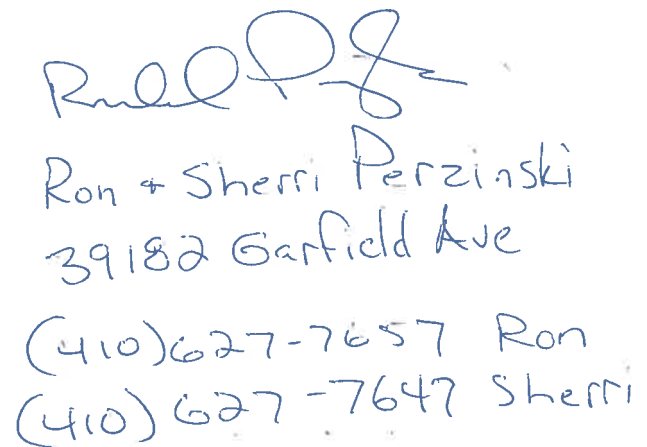 Ron + Sherri Perzinski
39182 Garfield Ave
(410)627-7657 Ron
(410) 627-7647 Sherri